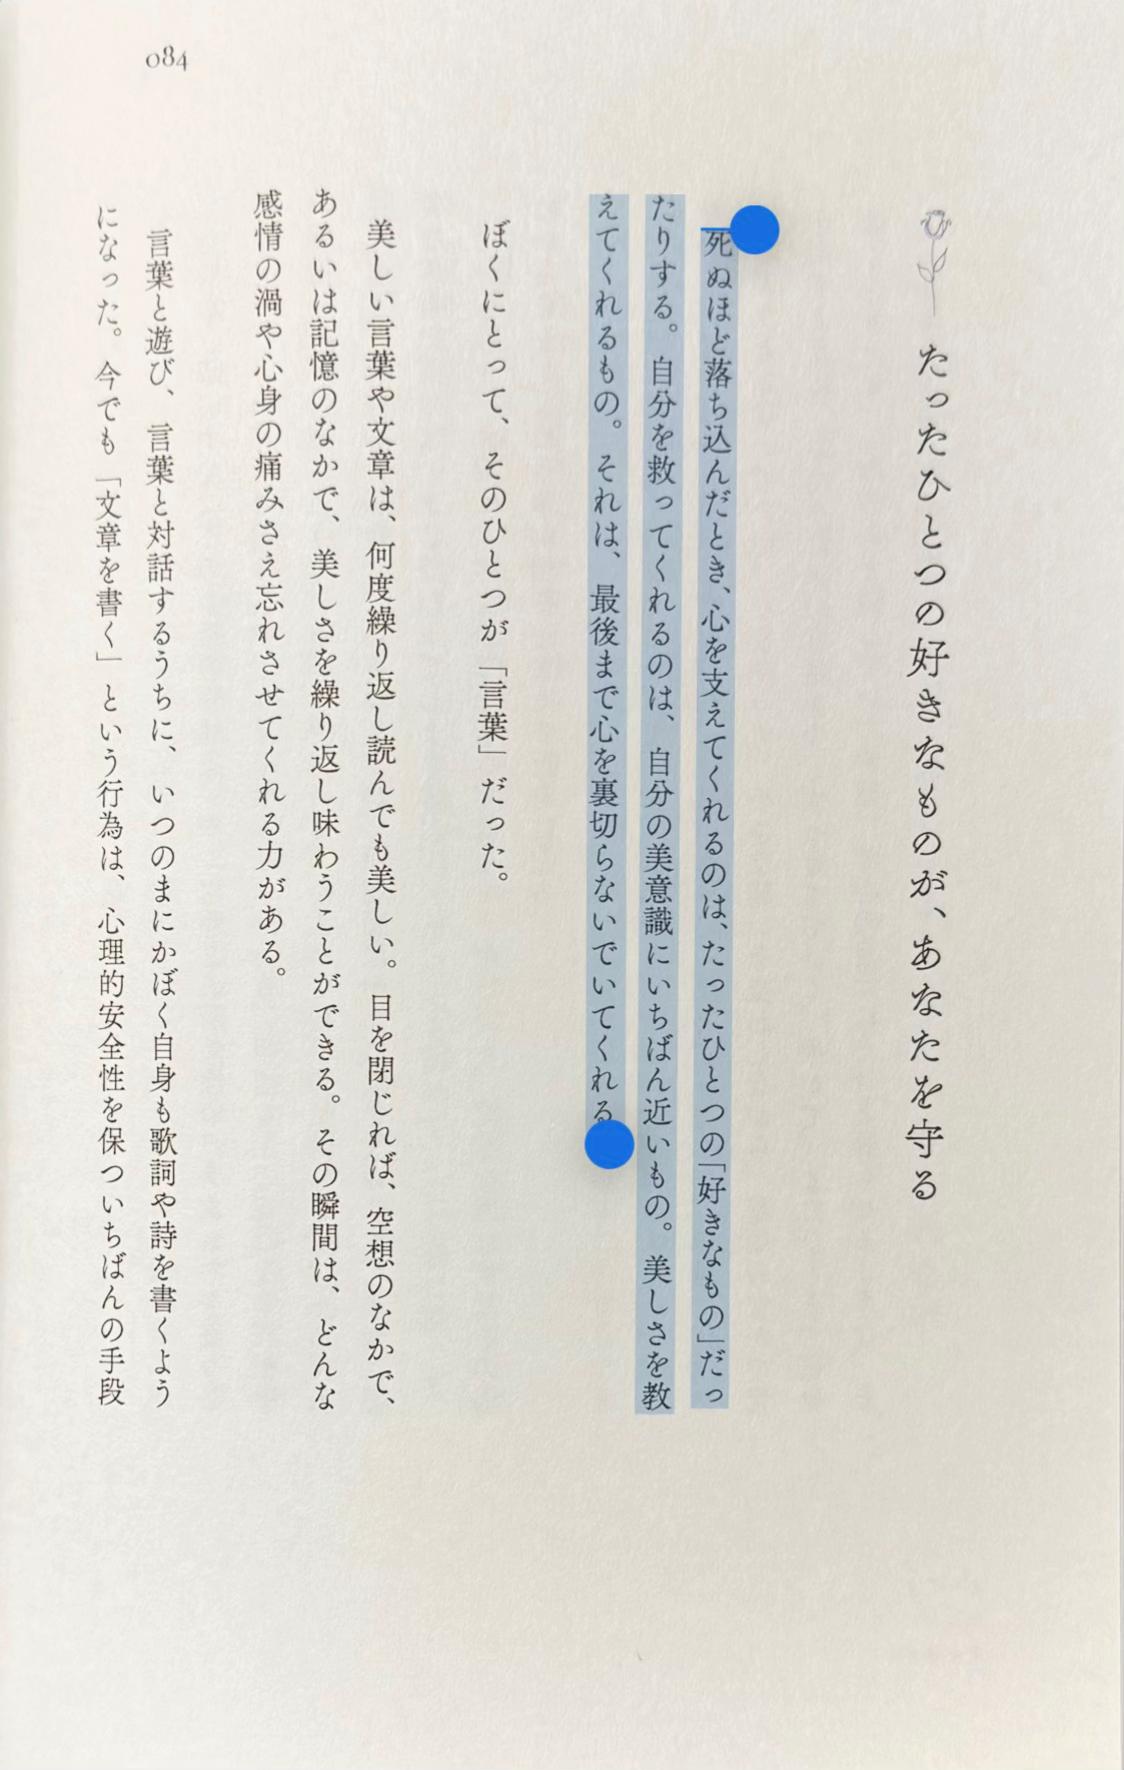 084
たったひとつの好きなものが、あなたを守る
死ぬほど落ち込んだとき、心を支えてくれるのは、たったひとつの「好きなもの」だっ
たりする。自分を救ってくれるのは、自分の美意識にいちばん近いもの。美しさを教
えてくれるもの。それは、最後まで心を裏切らないでいてくれる
ぼくにとって、そのひとつが「言葉」だった。
美しい言葉や文章は、何度繰り返し読んでも美しい。目を閉じれば、空想のなかで、
あるいは記憶のなかで、美しさを繰り返し味わうことができる。その瞬間は、どんな
感情の渦や心身の痛みさえ忘れさせてくれる力がある。
言葉と遊び、言葉と対話するうちに、いつのまにかぼく自身も歌詞や詩を書くよう
になった。今でも「文章を書く」という行為は、心理的安全性を保ついちばんの手段